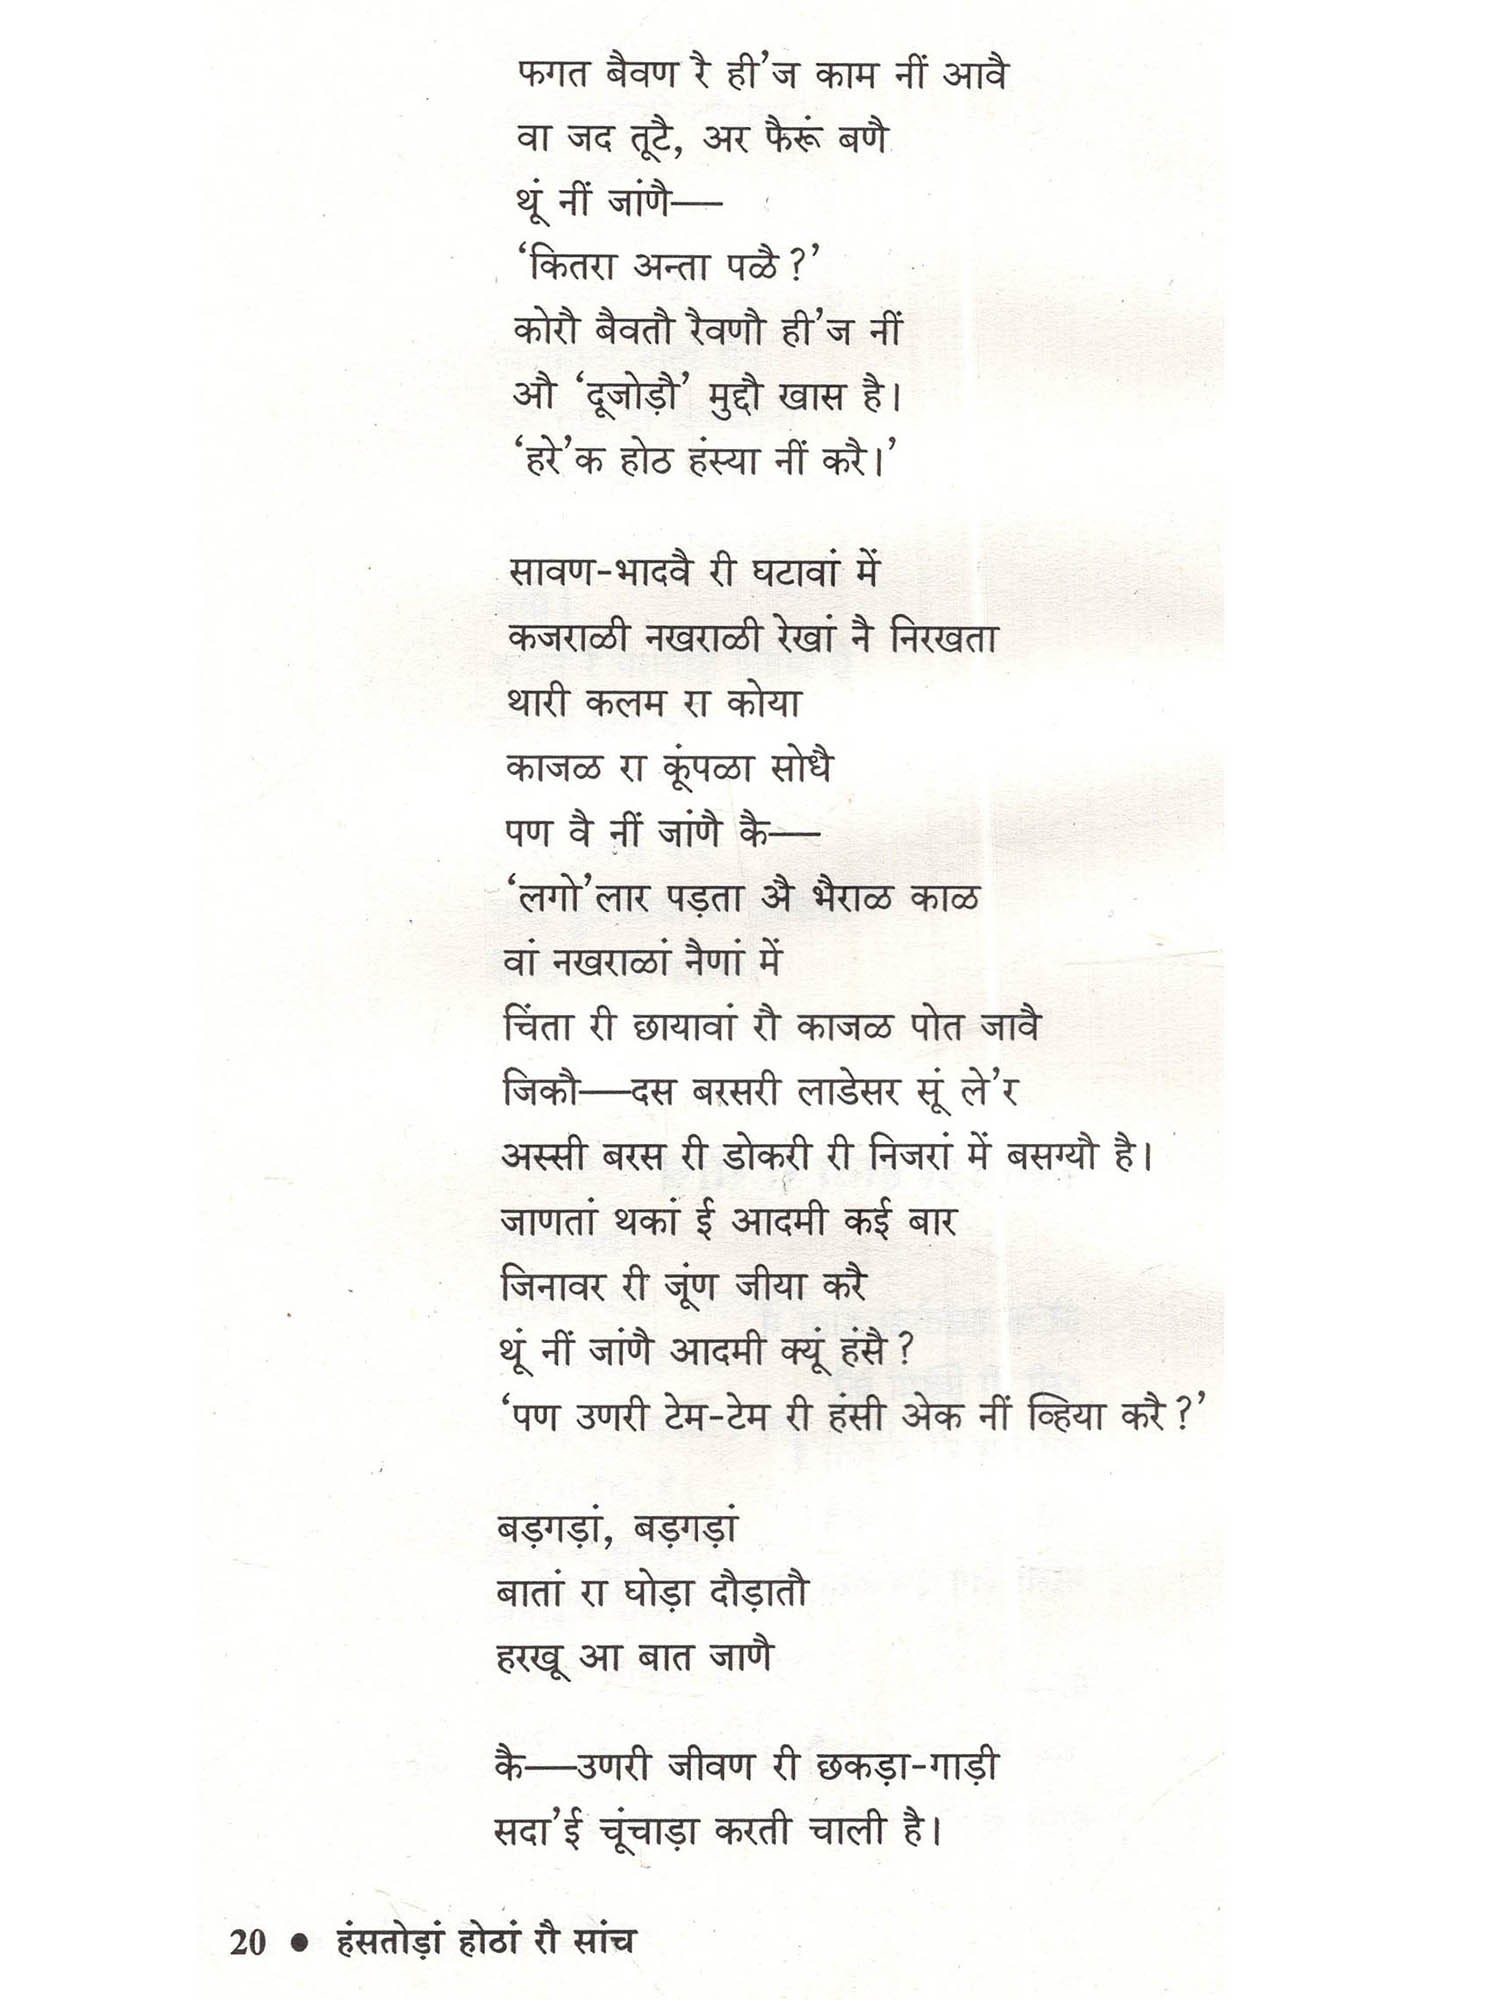 फगत बैवण रै ही’ज काम नीं आवै
वा जद तूटै, अर फैरूं बणै
थूं नीं जांणै—
‘कितरा अन्ता पळै?’
कोरौ बैवतौ रैवणौ ही’ज नीं
औ ‘दूजोड़ौ’ मुद्दौ खास है।
‘हरे’क होठ हंस्या नीं करै।’
सावण-भादवै री घटावां में
कजराळी नखराळी रेखां नै निरखता
थारी कलम रा कोया
काजळ रा कूंपळा सोधै
पण वै नीं जांणै कै—
‘लगो’लार पड़ता अै भैराळ काळ
वां नखराळां नैणां में
चिंता री छायावां रौ काजळ पोत जावै
जिकौ—दस बरसरी लाडेसर सूं ले’र
अस्सी बरस री डोकरी री निजरां में बसग्यौ है।
जाणतां थकां ई आदमी कई बार
जिनावर री जूंण जीया करै
थूं नीं जांणै आदमी क्यूं हंसै?
‘पण उणरी टेम-टेम री हंसी अेक नीं व्हिया करै?’
बड़गड़ां, बड़गड़ां
बातां रा घोड़ा दौड़ातौ
हरखू आ बात जाणै
कै—उणरी जीवण री छकड़ा-गाड़ी
सदा’ई चूंचाड़ा करती चाली है।
20 ● हंसतोड़ां होठां रौ सांच